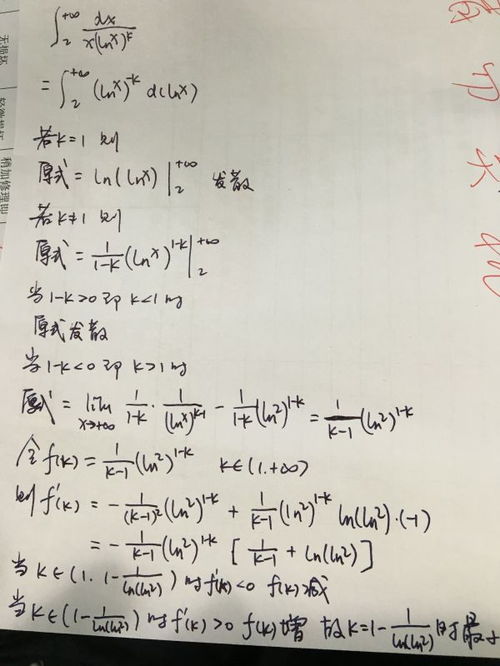 ∫₂^{+∞} dx / (x(ln x)^k)
= ∫₂^{+∞} (ln x)^{-k} d(ln x)
若k=1 则
原式 = ln(ln x) |₂^{+∞} 发散
若k≠1 则
原式 = 1/(1-k) (ln x)^{1-k} |₂^{+∞}
当1-k>0 即 k<1 时
原式发散
当1-k<0 即 k>1 时
原式 = lim_{x→+∞} 1/(1-k) · 1/(ln x)^{k-1} - 1/(1-k) (ln 2)^{1-k} = 1/(k-1) (ln 2)^{1-k}
令 f(k) = 1/(k-1) (ln 2)^{1-k} k∈(1.+∞)
则 f'(k) = - 1/(k-1)² (ln 2)^{1-k} + 1/(k-1) (ln 2)^{1-k} ln(ln 2)·(-1)
= - 1/(k-1) (ln 2)^{1-k} [ 1/(k-1) + ln(ln 2) ]
当 k∈(1. 1- 1/ln(ln 2)) 时 f'(k)<0 f(k)减
当 k∈(1- 1/ln(ln 2)) 时 f'(k)>0 f(k)增 故 k=1- 1/ln(ln 2) 时最小